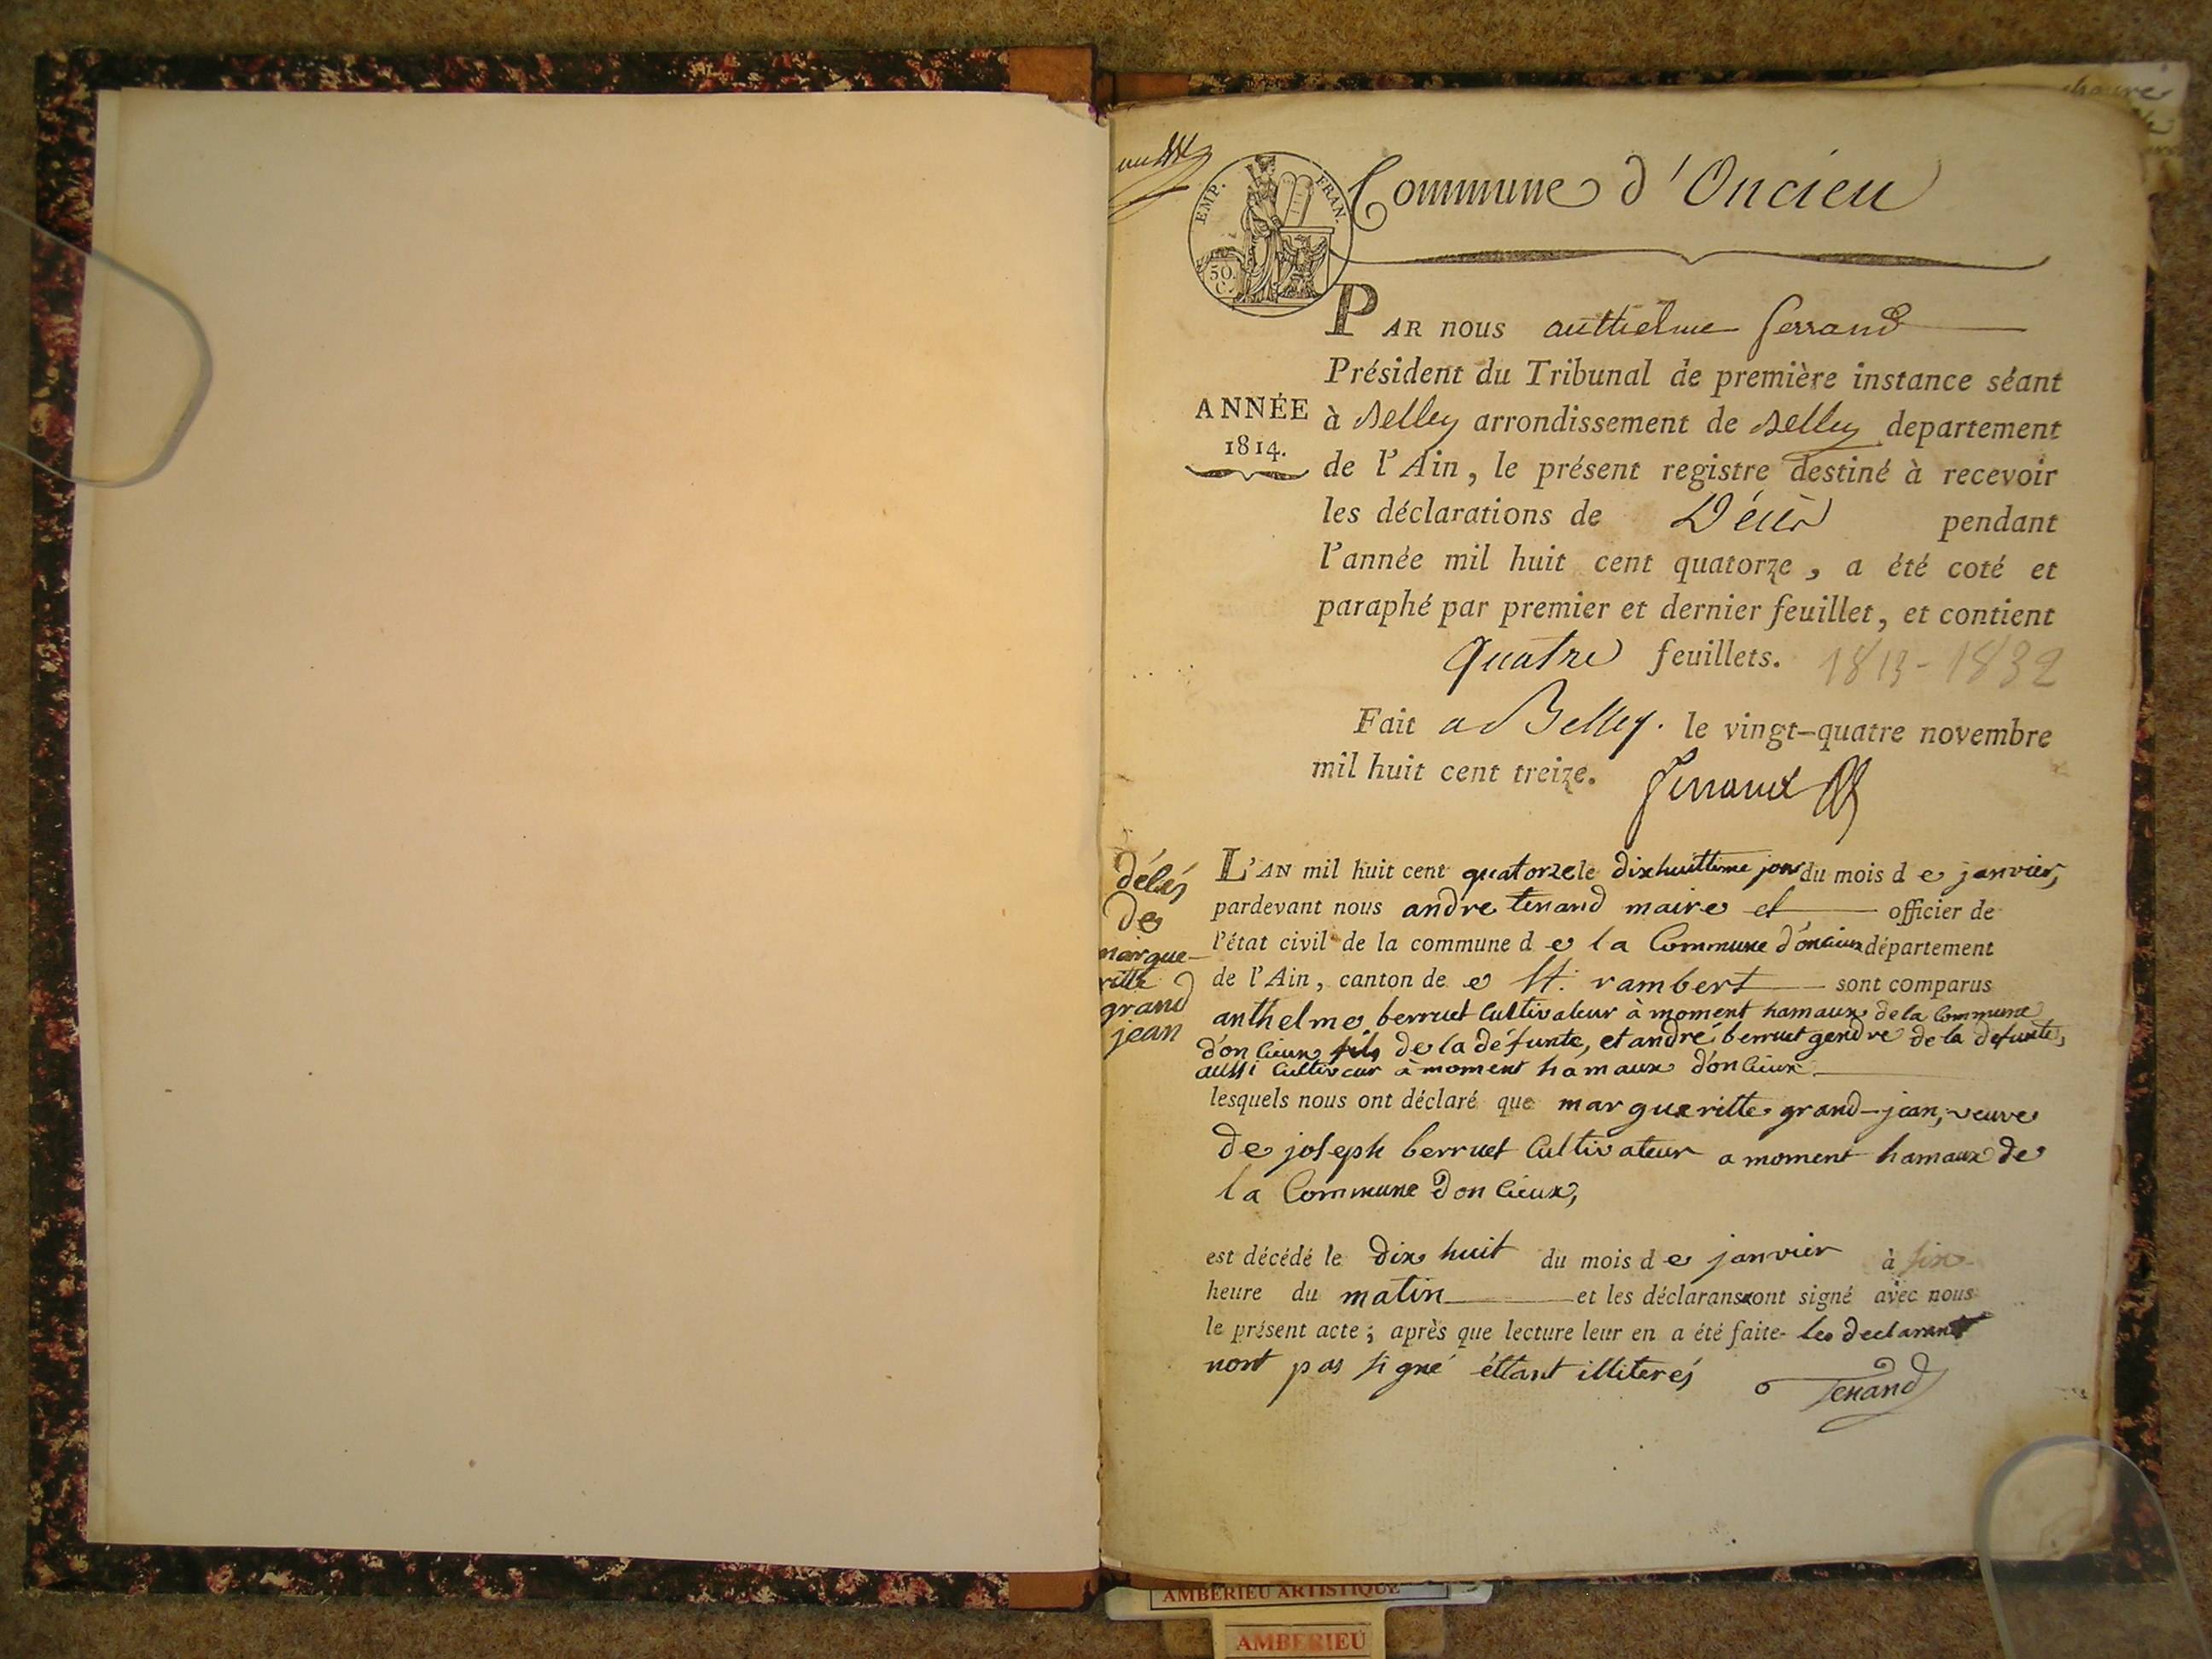 EMP. FRAN.
50.
C.
Commune d'Oncieu
PAR nous anthelme ferrand
Président du Tribunal de première instance séant
ANNÉE
1814.
à Belley arrondissement de Belley departement
de l'Ain, le présent registre destiné à recevoir
les déclarations de Décès pendant
l'année mil huit cent quatorze, a été coté et
paraphé par premier et dernier feuillet, et contient
quatre feuillets. 1813-1832
Fait a Belley. le vingt-quatre novembre
mil huit cent treize. ferrand
décés
de
margue-
ritte
grand
jean
L'AN mil huit cent quatorze le dixhuittieme jour du mois d e janvier,
pardevant nous andre tenand maire et officier de
l'état civil de la commune d e la Commune d'oncieux département
de l'Ain, canton de e St. rambert sont comparus
anthelme berruet Cultivateur à moment hamaux de la Commune
d'oncieux fils de la défunte, et andré berruet gendre de la defunte,
aussi Cultiveur à moment hamaux d'oncieux
lesquels nous ont déclaré que margueritte grand-jean, veuve
de joseph berruet Cultivateur a moment hamaux de
la Commune doncieux,
est décédé le dix huit du mois d e janvier à six
heure du matin et les déclarans ont signé avec nous
le présent acte; après que lecture leur en a été faite les declarant
nont pas signé éttant illiterés Tenand
AMBERIEU ARTISTIQUE
AMBERIEU